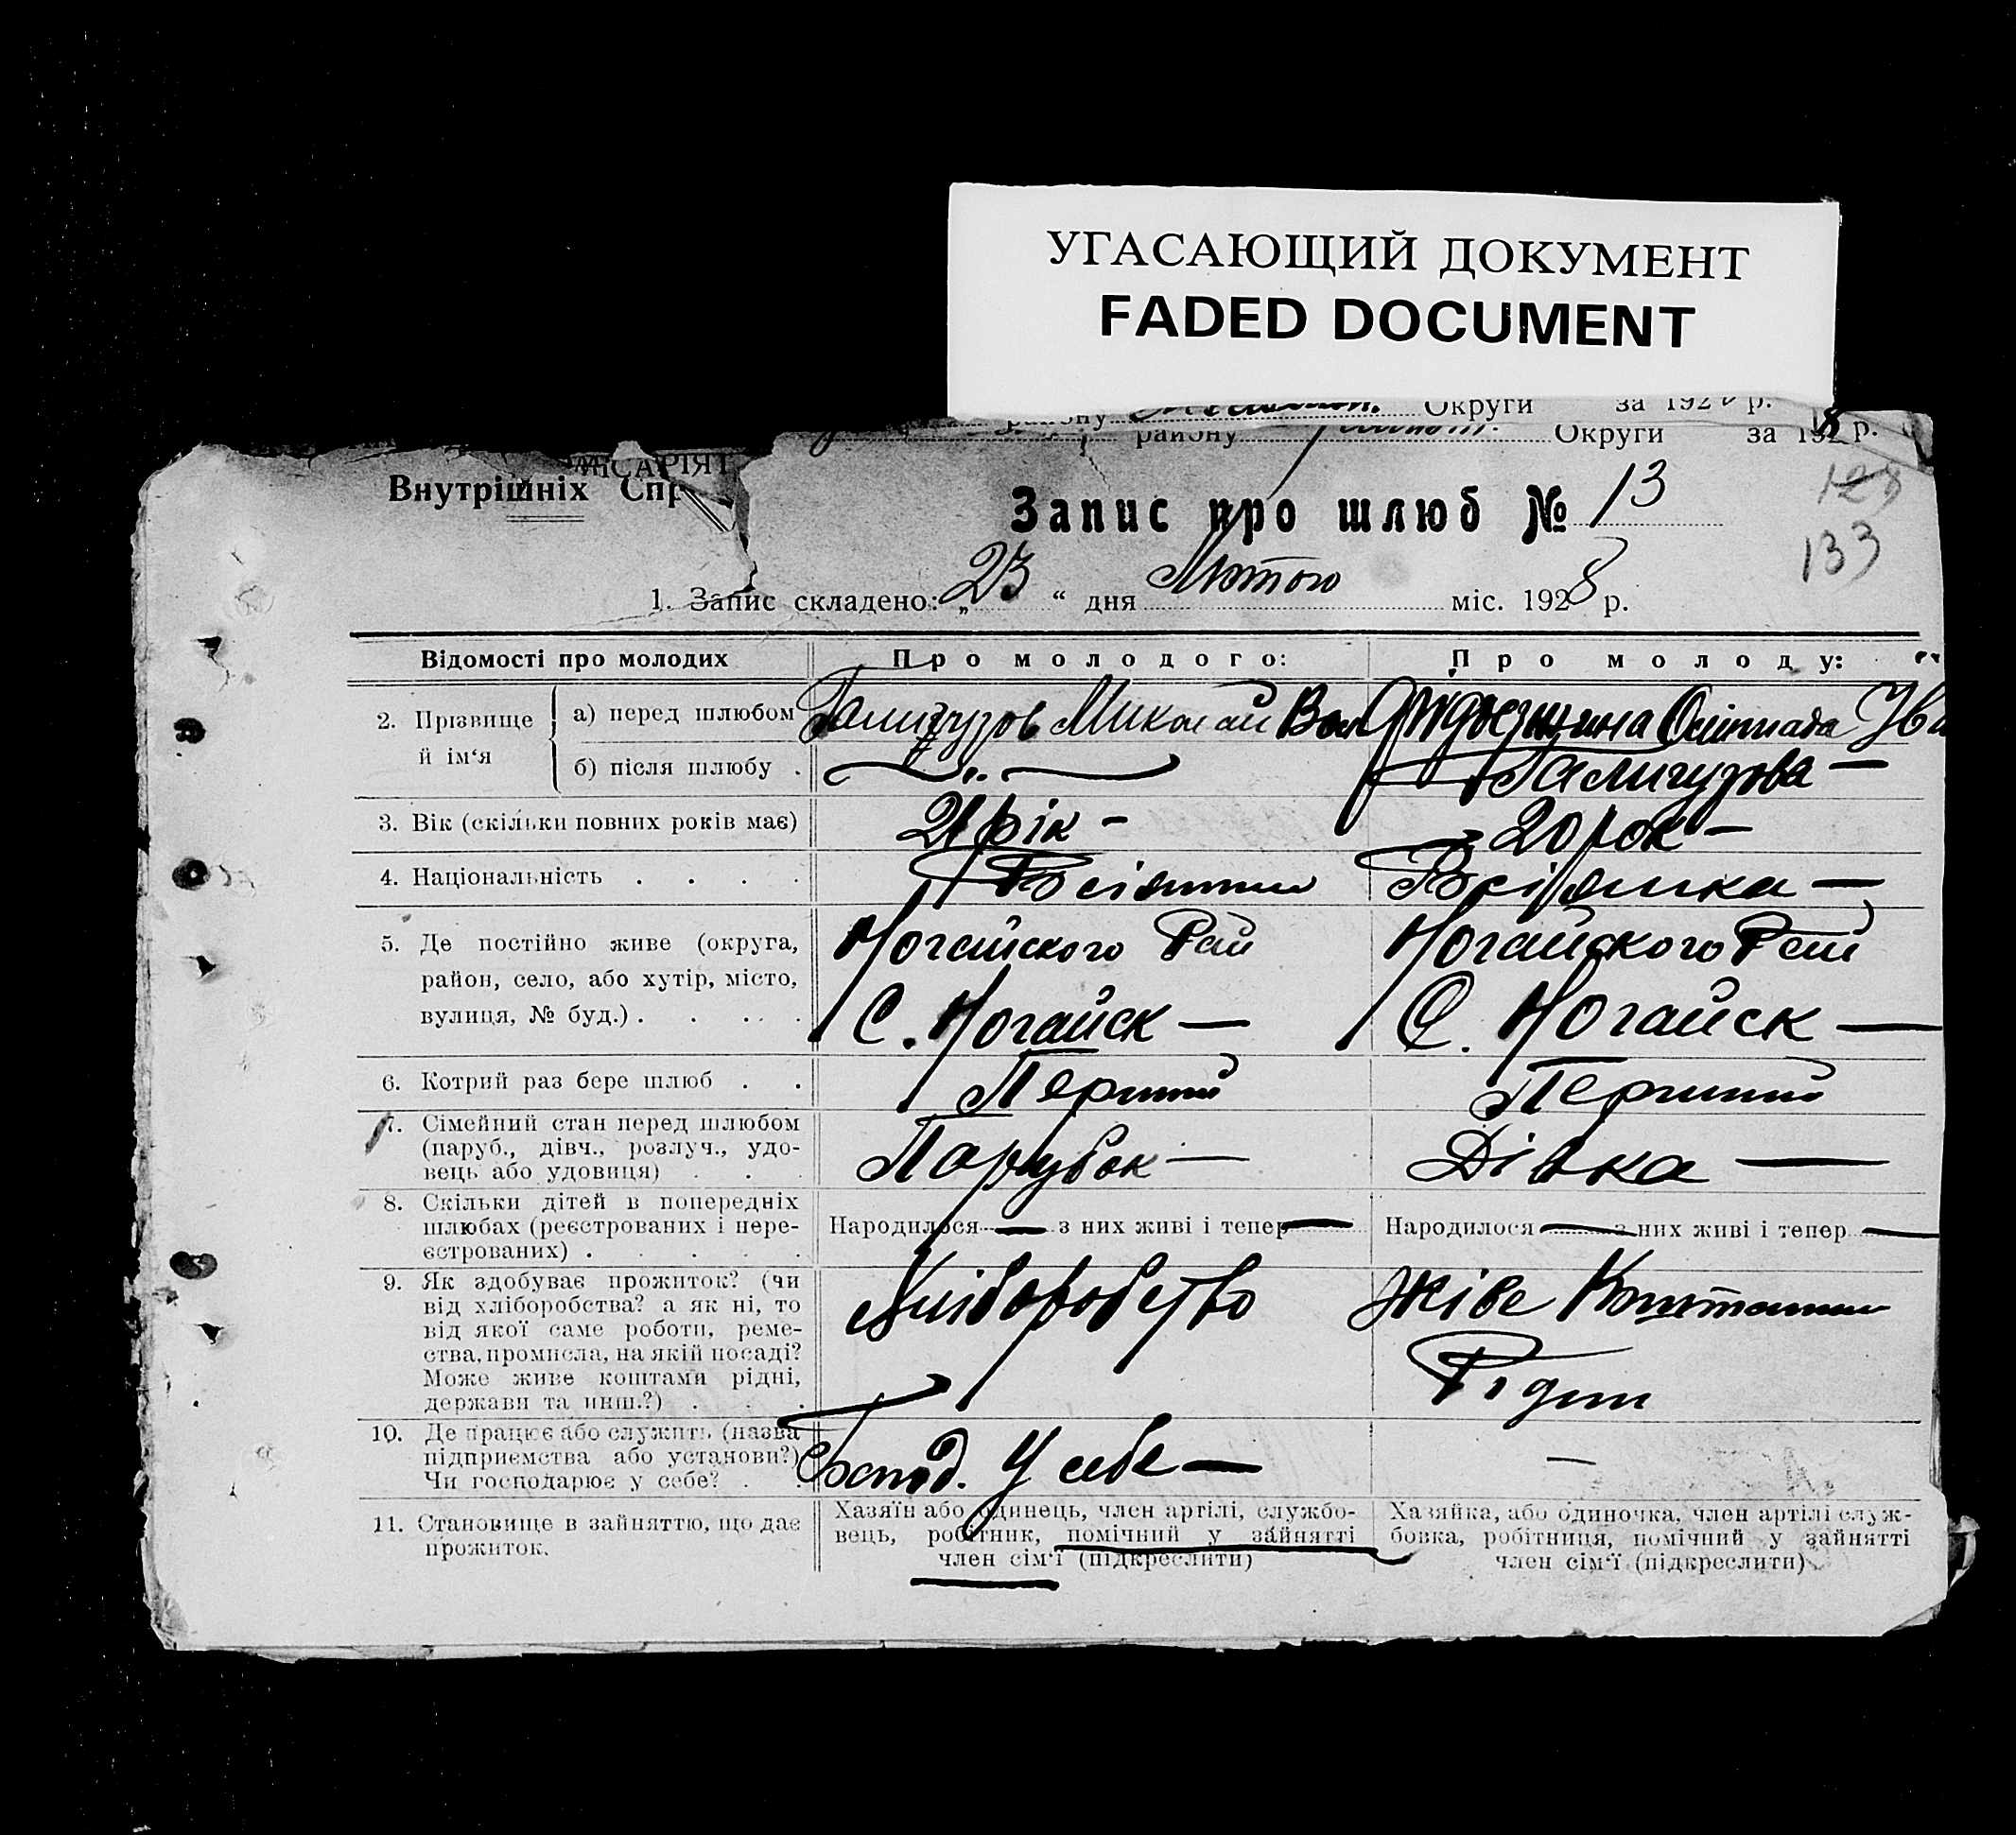 УГАСАЮЩИЙ ДОКУМЕНТ
FADED DOCUMENT
району Округи за 192 р.
району Округи за 1928 р.
Внутрішніх Спр
Запис про шлюб № 13
128
133
1. Запис складено: „23“ дня Лютого міс. 1928 р.
Відомості про молодих Про молодого: Про молоду:
2. Прізвище й ім‘я а) перед шлюбом Миколай Вас Олімпіада Іва
б) після шлюбу . — „ — Галигузова —
3. Вік (скільки повних років має) 21 рік - 20 рок —
4. Національність . . . . Росіянин Росіянка —
5. Де постійно живе (округа, Ногайского Рай Ногайского Рай
район, село, або хутір, місто,
вулиця, № буд.) . . . . С. Ногайск — С. Ногайск —
6. Котрий раз бере шлюб . . Перший Перший
7. Сімейний стан перед шлюбом
(паруб., дівч., розлуч., удо-
вець або удовиця) . . . Парубок — Дівка —
8. Скільки дітей в попередніх
шлюбах (реєстрованих і нере- Народилося — з них живі і тепер — Народилося — з них живі і тепер —
єстрованих) . . . . .
9. Як здобуває прожиток? (чи
від хліборобства? а як ні, то Хліборобство Живе Коштами
від якої саме роботи, реме-
ства, промисла, на якій посаді?
Може живе коштами рідні, Рідни
держави та инш.?) . . .
10. Де працює або служить (назва
підприємства або установи?) Господ. У себе — —
Чи господарює у себе? . .
11. Становище в зайняттю, що дає
прожиток.
Хазяїн або одинець, член артілі, службо-
вець, робітник, помічний у зайнятті
член сім‘ї (підкреслити)
Хазяйка, або одиночка, член артілі служ-
бовка, робітниця, помічний у зайнятті
член сім‘ї (підкреслити)